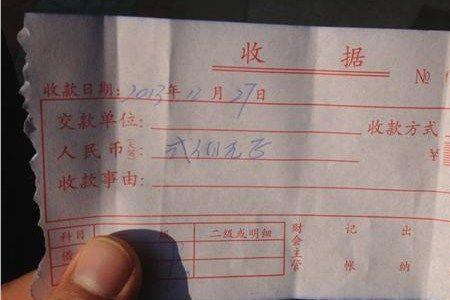 收 据
№
收款日期: 2013 年 11 月 27 日
交款单位: 收款方式
人民币(大写): 弍佰元正 ¥
收款事由:
科目 级 二级或明细 财会主管 记 出
借 帐 纳